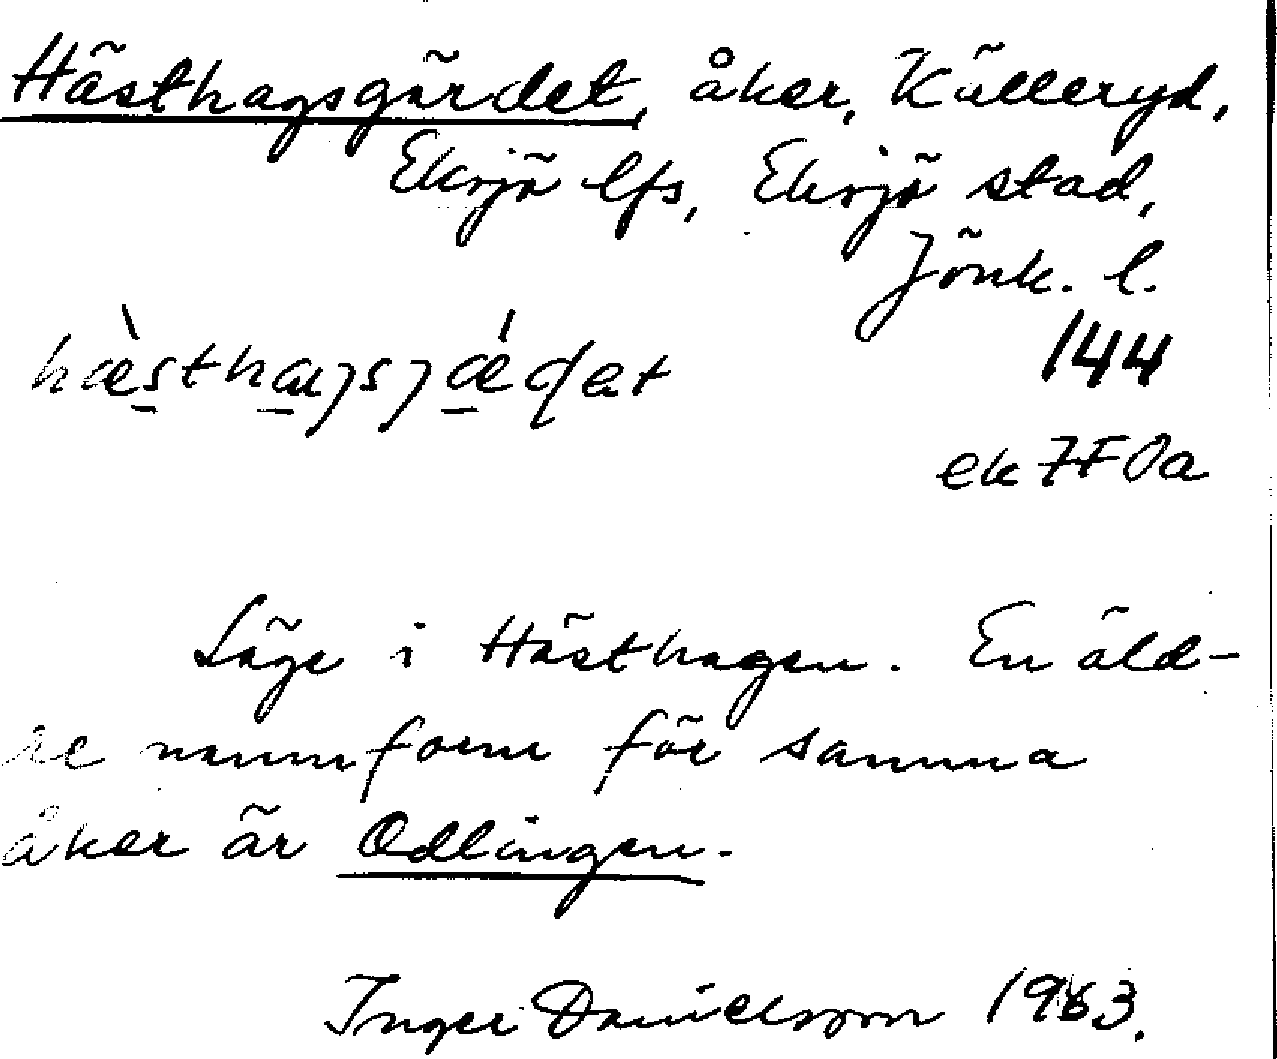 Hästhagsgärdet, åker, Källeryd,
Eksjö lfs, Eksjö stad,
Jönk. l.
144
ek 7F0a
Läge i Hästhagen. En äld-
re namnform för samma
åker är Odlingen.
Inger Danielsson 1963.